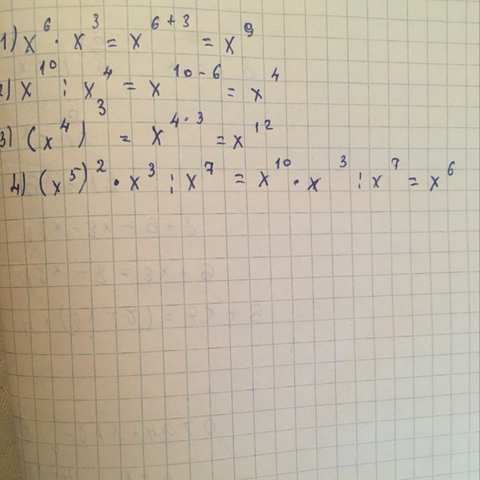 1) x⁶ · x³ = x⁶⁺³ = x⁹
2) x¹⁰ : x⁴ = x¹⁰⁻⁶ = x⁴
3) (x⁴)³ = x⁴·³ = x¹²
4) (x⁵)² · x³ : x⁷ = x¹⁰ · x³ : x⁷ = x⁶